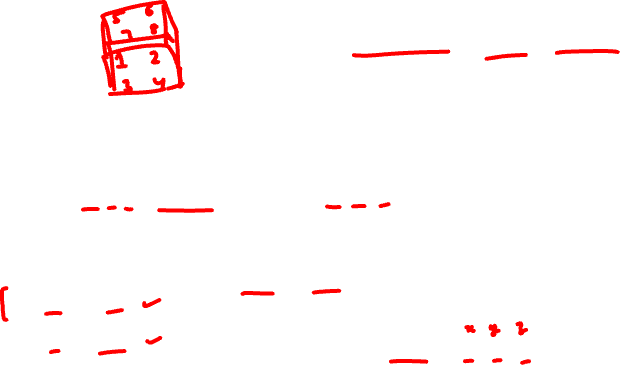 5 6
7 8
1 2
3 4
x y z